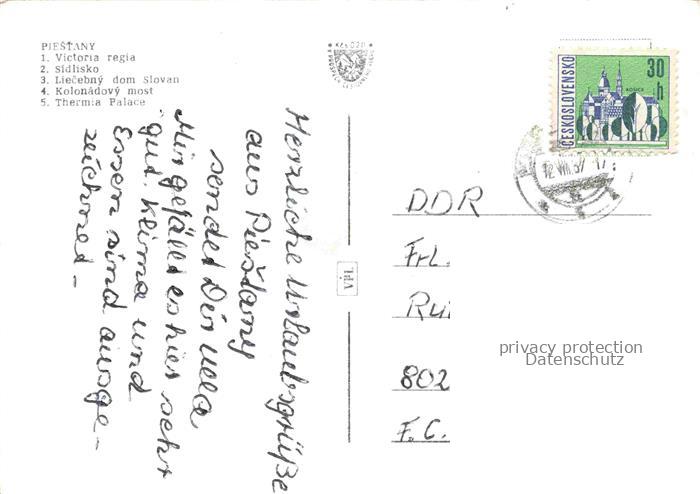 PIEŠŤANY
1. Victoria regia
2. Sídlisko
3. Liečebný dom Slovan
4. Kolonádový most
5. Thermia Palace
Herzliche Urlaubsgrüße
aus Piešťany
sendet Dir
Mir gefällt es hier sehr
gut. Klima und
Essen sind ausge-
zeichnet -
VPL
ČESKOSLOVENSKO
30
h
KOŠICE
DDR
Frl.
802
F. C.
privacy protection
Datenschutz